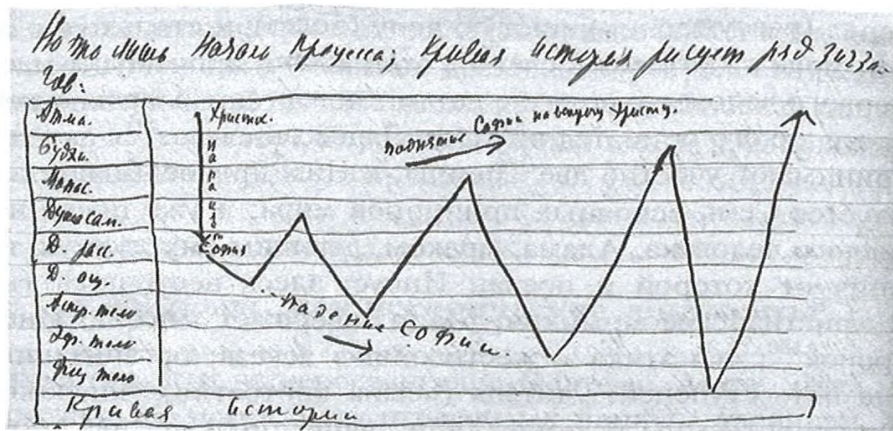 Но то лишь начало процесса; кривая истории рисует ряд зигза-
гов:
Атма.
Будхи.
Манас.
Душа сам.
Д. расс.
Д. ощ.
Астр. тело
Эф. тело
Физ. тело
Христос.
София
поднятие Софии навстречу Христу.
падение Софии.
Кривая истории